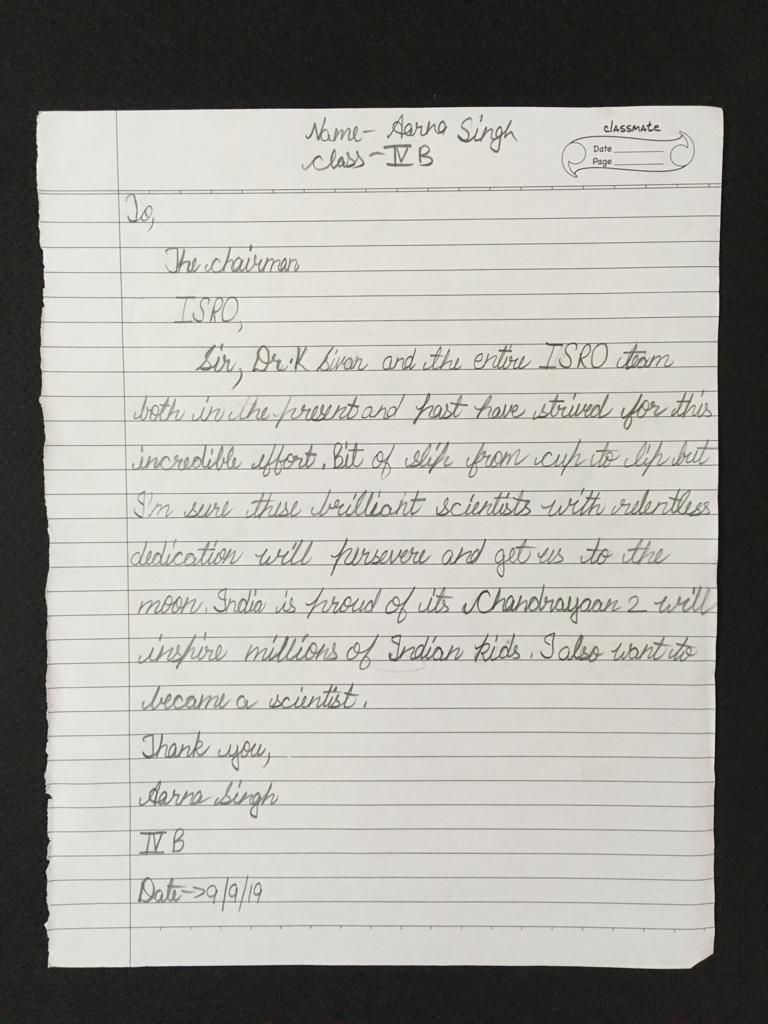 Name- Aarna Singh
class - IV B
classmate
Date
Page
To,
The chairman
ISRO,
Sir, Dr.K Sivan and the entire ISRO team
both in the present and past have strived for this
incredible effort. Bit of slip from cup to lip but
I'm sure these brilliant scientists with relentless
dedication will persevere and get us to the
moon. India is proud of its Chandrayaan 2 will
inspire millions of Indian kids. I also want to
became a scientist.
Thank you,
Aarna Singh
IV B
Date->9/9/19